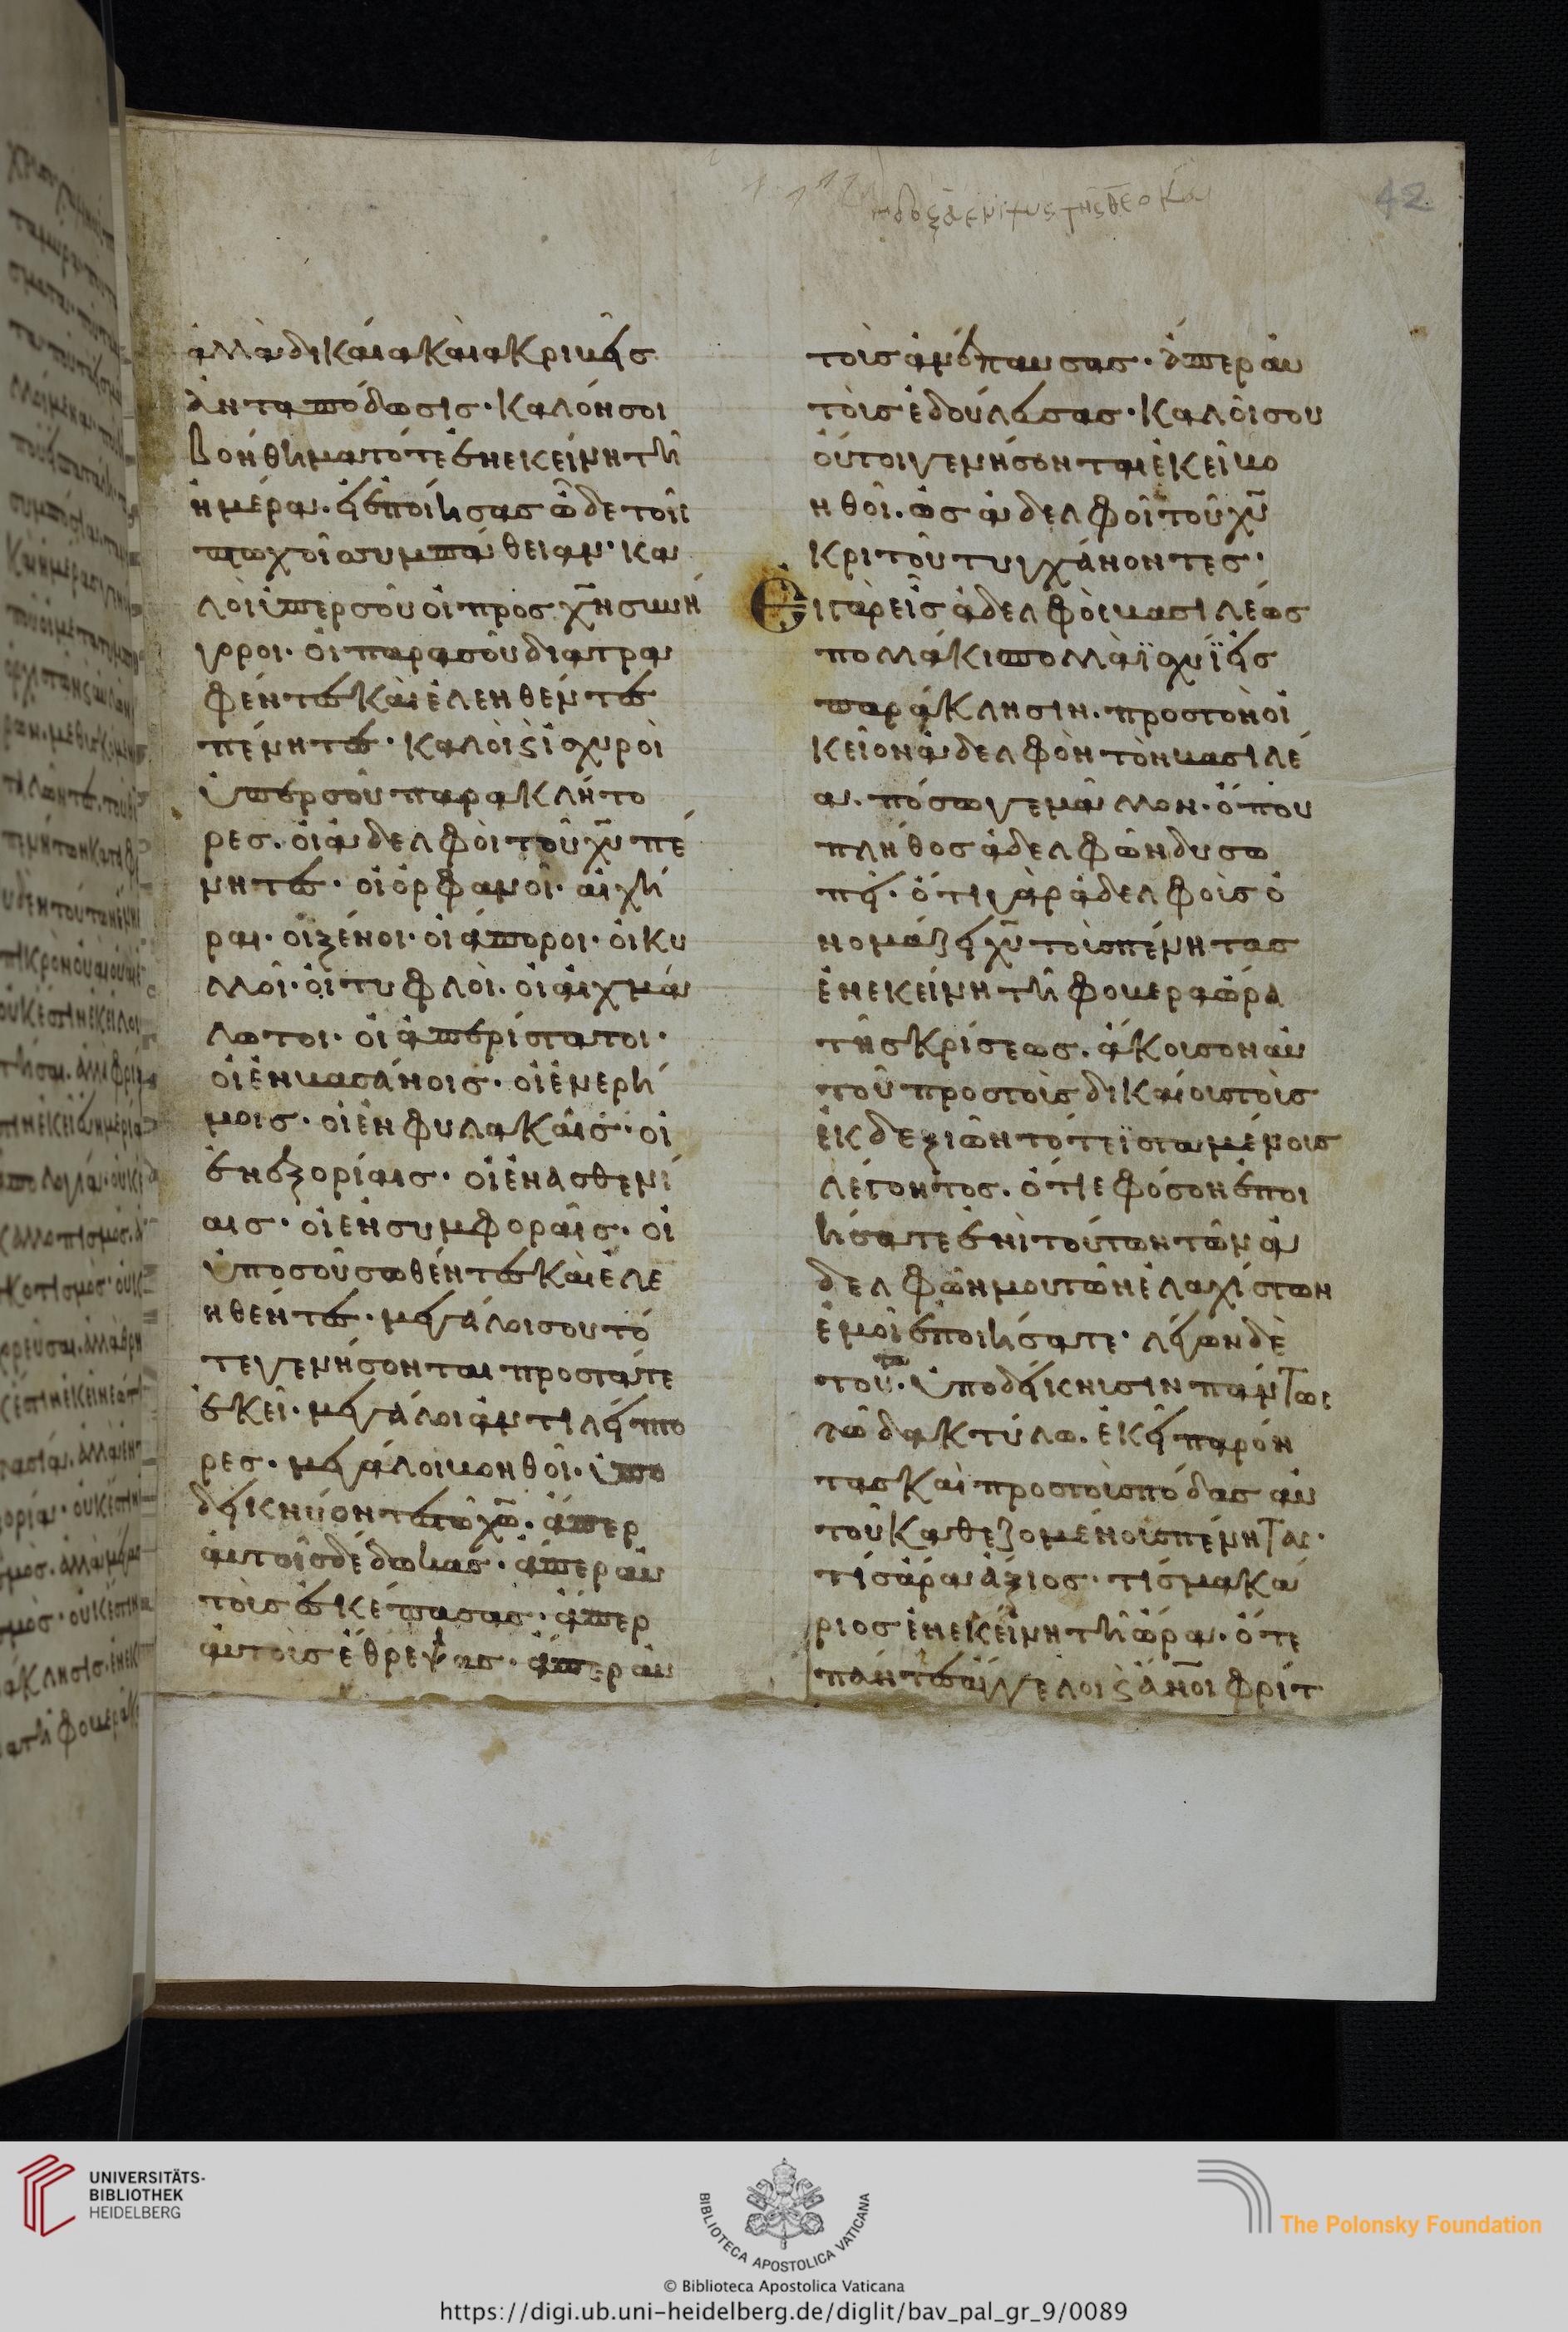 42
ἀλλὰ δικαία καὶ ἀκριβὴς
ἀνταπόδωσις· καλόν σοι
βοήθημα τότε ἐν ἐκείνη τῆ
ἡμέρα· ἡ ἐποίησας ὧδε τοῖς
πτωχοῖς συμπάθειαν· κα
λοὶ ὑπὲρ σοῦ οἱ πρὸς χν συνή
γοροι· οἱ παρὰ σοῦ διατρα
φέντες καὶ ἐλεηθέντες
πένητες· καλοὶ κ ἰσχυροὶ
ὑπὲρ σοῦ παρακλήτο
ρες· οἱ ἀδελφοὶ τοῦ χυ πέ
νητες· οἱ ὀρφανοί· αἱ χῆ
ραι· οἱ ξένοι· οἱ ἄποροι· οἱ κυ
λλοί· οἱ τυφλοί· οἱ αἰχμά
λωτοι· οἱ ἀπερίστατοι·
οἱ ἐν βασάνοις· οἱ ἐν ἐρή
μοις· οἱ ἐν φυλακαῖς· οἱ
ἐν ἐξορίαις· οἱ ἐν ἀσθενί
αις· οἱ ἐν συμφοραῖς· οἱ
ὑπὸ σοῦ σωθέντες καὶ ἐλε
ηθέντες· μεγάλοι σου τό
τε γενήσονται προστάτε
ἐκεῖ· μεγάλοι ἀντιλήπτο
ρες· μεγάλοι βοηθοί· ὑπο
δεικνύοντες τῶ χω· ἅπερ
αὐτοῖς δέδωκας· ἅπερ αὐ
τοὺς ἐσκέπασας· ἅπερ
αὐτοὺς ἔθρεψας· ἅπερ αὐ
τοὺς ἀνέπαυσας· ἅπερ αὐ
τοὺς ἐδούλευσας· καλοί σου
οὗτοι γενήσονται ἐκεῖ βο
ηθοί· ὡς ἀδελφοὶ τοῦ χυ
κριτοῦ τυγχάνοντες·
Εἰ γὰρ εἷς ἀδελφὸς βασιλέως
πολλάκις πολλὰ ἰσχύει εἰς
παράκλησιν· πρὸς τὸν οἰ
κεῖον ἀδελφὸν τὸν βασιλέ
α· πόσω γε μᾶλλον· ὅπου
πλῆθος ἀδελφῶν δυσω
πεῖ· ὅτι γὰρ ἀδελφοὺς ὀ
νομάζει χυ τοὺς πένητας
ἐν ἐκείνη τῆ φοβερᾶ ὥρα
τῆς κρίσεως· ἄκουσον αὐ
τοῦ πρὸς τοὺς δικαίους τοὺς
ἐκ δεξιῶν τότε ἱσταμένους
λέγοντος· ὅτι ἐφ' ὅσον ἐποι
ήσατε ἑνὶ τούτων τῶν ἀ
δελφῶν μου τῶν ἐλαχίστων
ἐμοὶ ἐποιήσατε· λέγων δὲ
τοῦτα· ὑποδείκνυσιν πάντως
τῶ δακτύλω· ἐκεῖ παρόν
τας καὶ πρὸς τοὺς πόδας αὐ
τοῦ καθεζομένους πένητας·
τίς ἄρα ἄξιος· τίς μακά
ριος ἐν ἐκείνη τῆ ὥρα· ὅτε
πάντες ἄγγελοι κ ἄνοι φρίτ
UNIVERSITÄTS-
BIBLIOTHEK
HEIDELBERG
BIBLIOTECA APOSTOLICA VATICANA
The Polonsky Foundation
© Biblioteca Apostolica Vaticana
https://digi.ub.uni-heidelberg.de/diglit/bav_pal_gr_9/0089